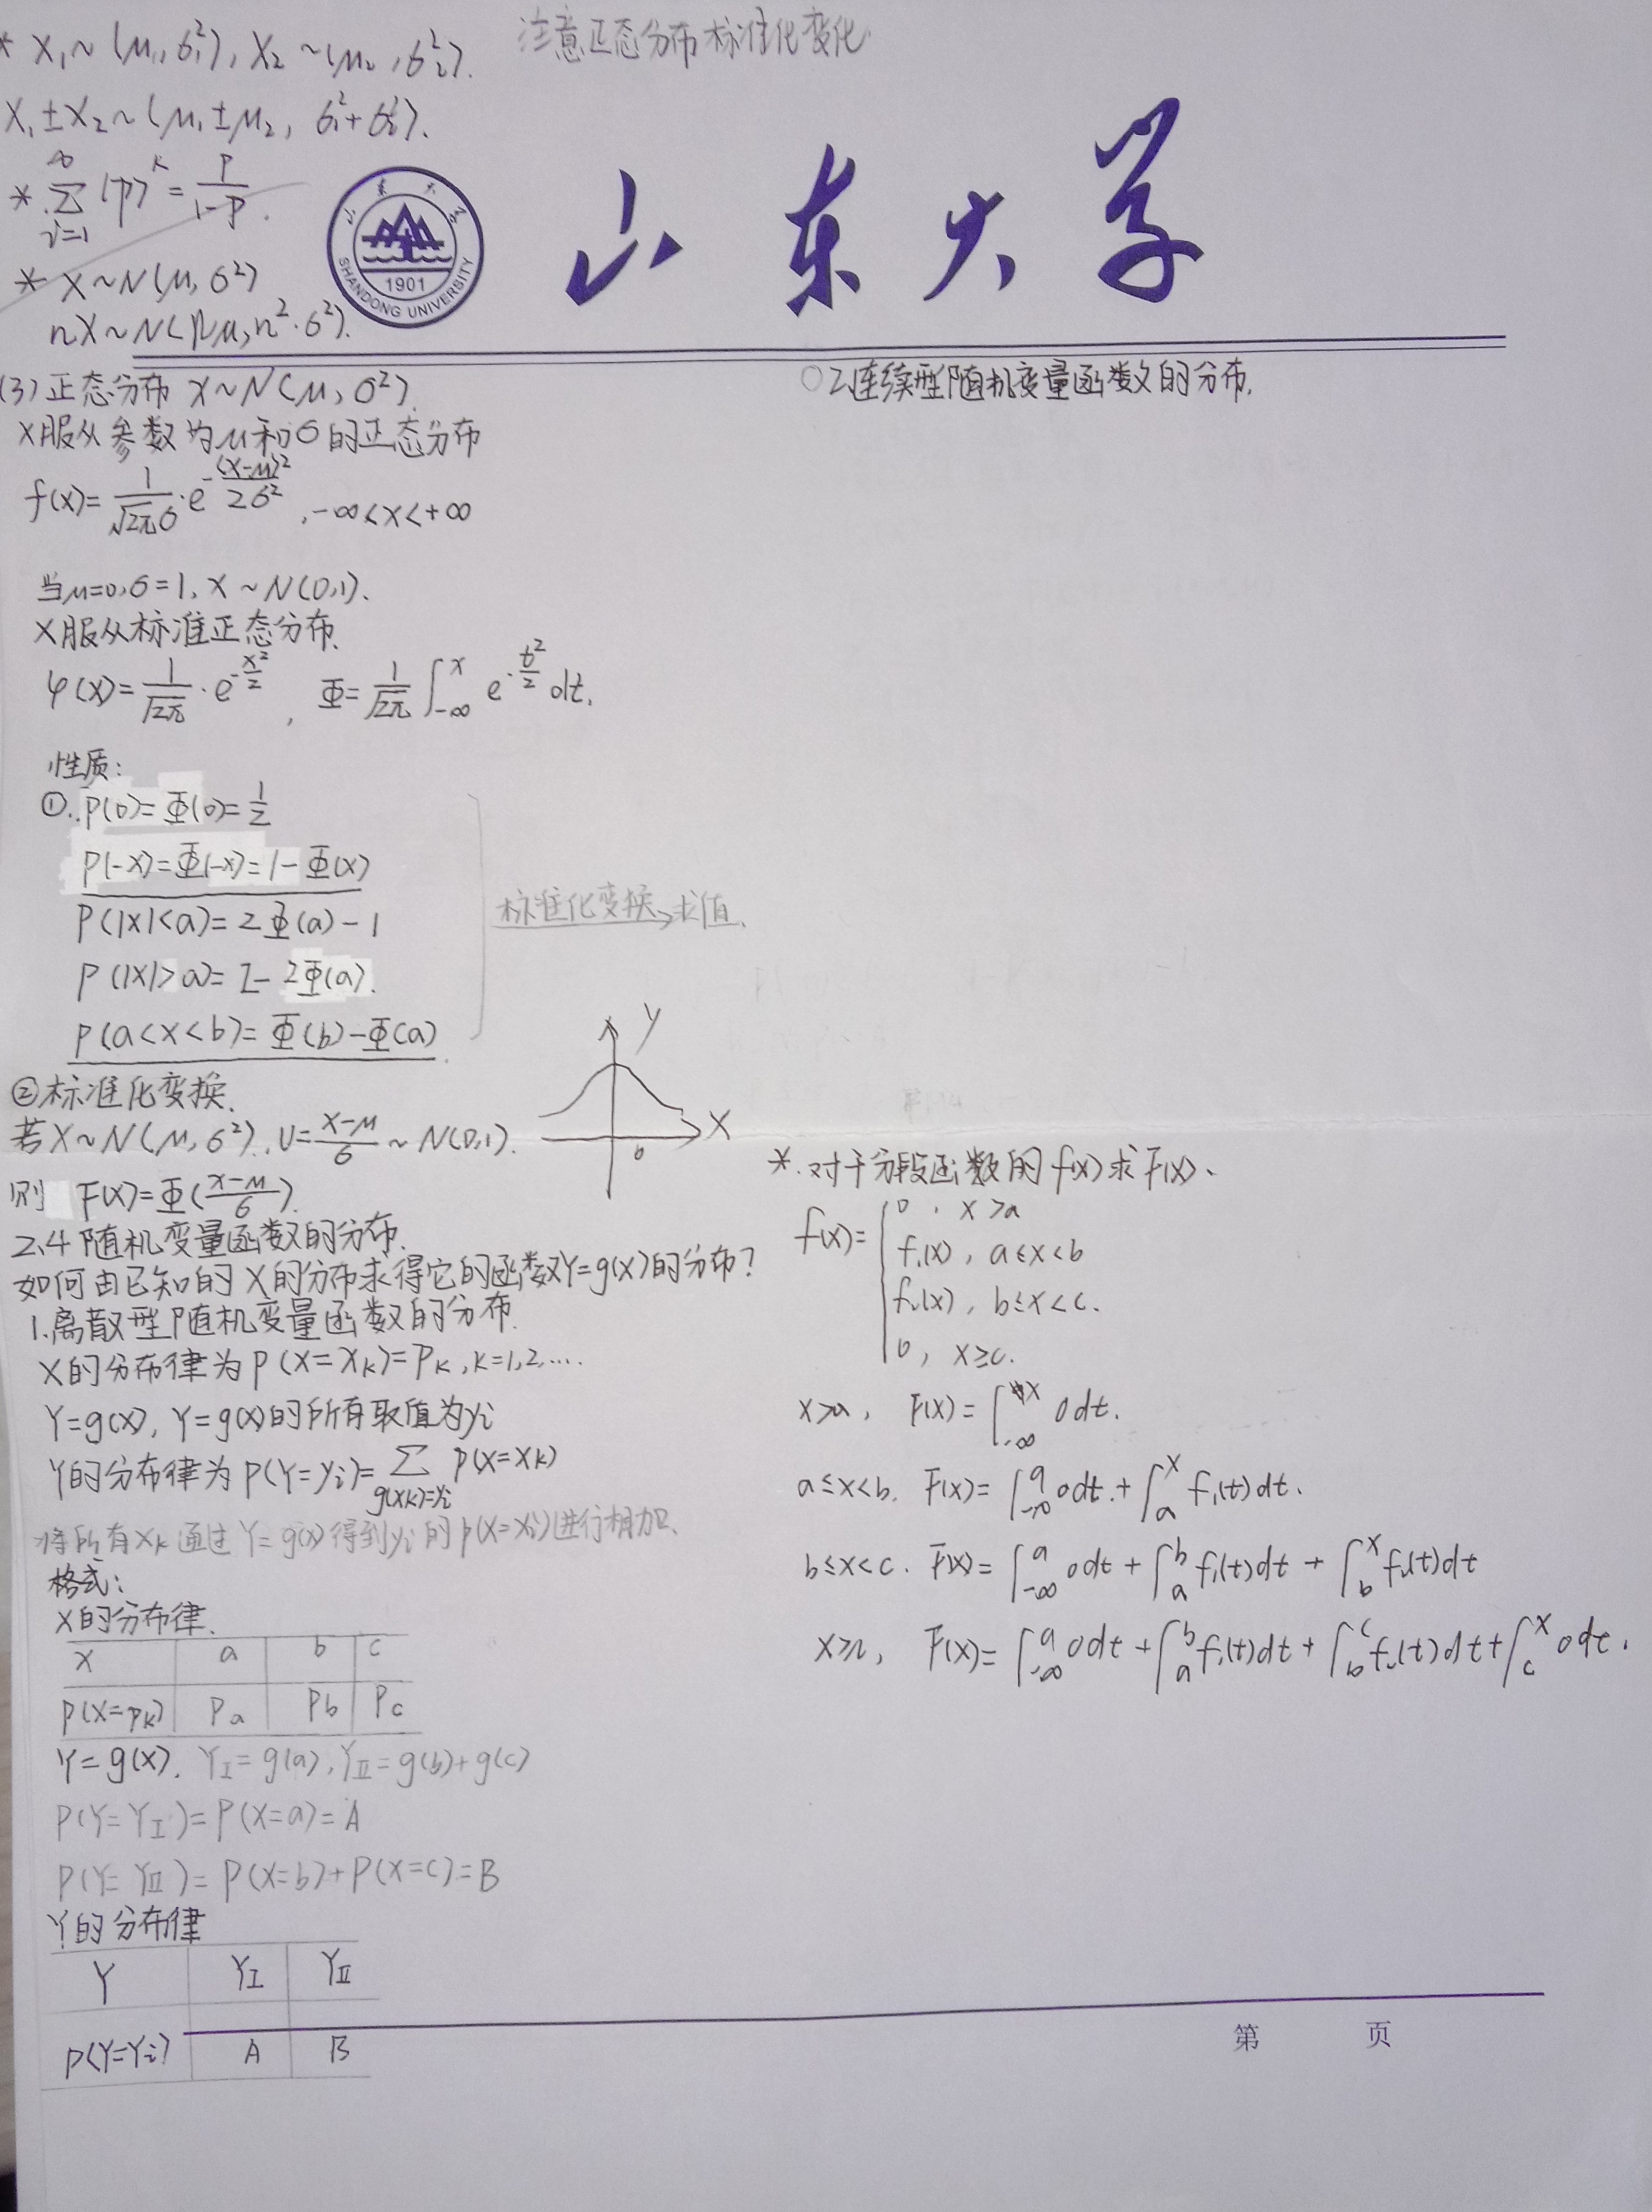 * X₁~(μ₁,σ₁²), X₂~(μ₂,σ₂²).
注意正态分布标准化变化
X₁±X₂~(μ₁±μ₂, σ₁²+σ₂²).
* ∑_{i=1}^{∞} (p)^k = p/(1-p).
* X~N(μ,σ²)
nX~N(nμ,n²·σ²).
山东大学
SHANDONG UNIVERSITY
1901
山东大学
(3)正态分布 X~N(μ,σ²).
X服从参数为μ和σ的正态分布
f(x)=1/(√2π σ)·e^{-(x-μ)²/2σ²}, -∞<x<+∞
当μ=0,σ=1, X~N(0,1).
X服从标准正态分布.
φ(x)=1/√2π·e^{-x²/2}, Φ=1/√2π ∫_{-∞}^{x} e^{-t²/2}dt.
性质:
①.P(0)=Φ(0)=1/2
P(-x)=Φ(-x)=1-Φ(x)
P(|X|<a)=2Φ(a)-1
标准化变换→求值.
P(|X|>a)=2-2Φ(a).
P(a<X<b)=Φ(b)-Φ(a).
Y
X
0
②标准化变换.
若X~N(μ,σ²). U=(X-μ)/σ ~ N(0,1).
则 F(x)=Φ((x-μ)/σ).
2.4 随机变量函数的分布.
如何由已知的X的分布求得它的函数Y=g(X)的分布?
1.离散型随机变量函数的分布.
X的分布律为P(X=xₖ)=Pₖ,k=1,2,....
Y=g(x), Y=g(x)的所有取值为yᵢ
Y的分布律为P(Y=yᵢ)=∑_{g(xk)=yᵢ} P(X=xk)
将所有xₖ通过Y=g(x)得到yᵢ的P(X=xᵢ)进行相加.
格式:
X的分布律.
X a b c
P(X=pₖ) Pa Pb Pc
Y=g(x). Y_Ⅰ=g(a), Y_Ⅱ=g(b)+g(c)
P(Y=Y_Ⅰ)=P(X=a)=A
P(Y=Y_Ⅱ)=P(X=b)+P(X=c)=B
Y的分布律
Y Y_Ⅰ Y_Ⅱ
P(Y=Yᵢ) A B
○2.连续型随机变量函数的分布.
*.对于分段函数的f(x)求F(x).
f(x)={0, x>a
f₁(x), a≤x<b
f₂(x), b≤x<c.
0, x≥c.
x>a, F(x)=∫_{-∞}^{x} 0dt.
a≤x<b. F(x)=∫_{-∞}^{a} 0dt.+∫_{a}^{x} f₁(t)dt.
b≤x<c. F(x)=∫_{-∞}^{a} 0dt+∫_{a}^{b} f₁(t)dt+∫_{b}^{x} f₂(t)dt
F(x)=∫_{-∞}^{a} 0dt+∫_{a}^{b} f₁(t)dt+∫_{b}^{c} f₂(t)dt+∫_{c}^{x} 0dt.
第 页